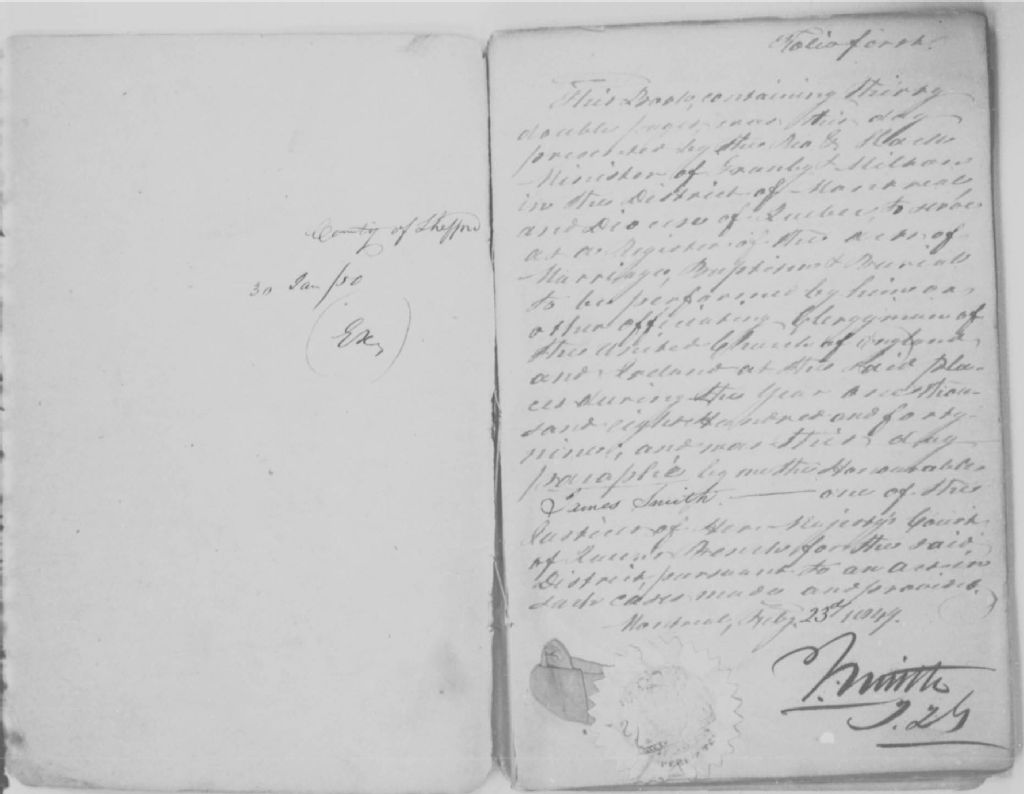 County of Shefford
30 Jan /50
(Ex)
Folio first.
This Book, containing thirty
double pages, was this day
presented by the Rev G. Slack
Minister of Granby & Milton
in the District of Montreal
and Diocese of Quebec, to serve
as a Register of the acts of
Marriage, Baptism & Burial
to be performed by him or
other officiating Clergyman of
the United Church of England
and Ireland at the said pla-
ces during the Year one thou-
sand eight Hundred and forty-
nine, and was this day
paraphé by me the Honourable
James Smith. — one of the
Justices of Her Majesty's Court
of Queen's Bench for the said
District, pursuant to an act in
such cases made and provided.
Montreal, Feby. 23d 1849.
J. Smith
J. Q. B.